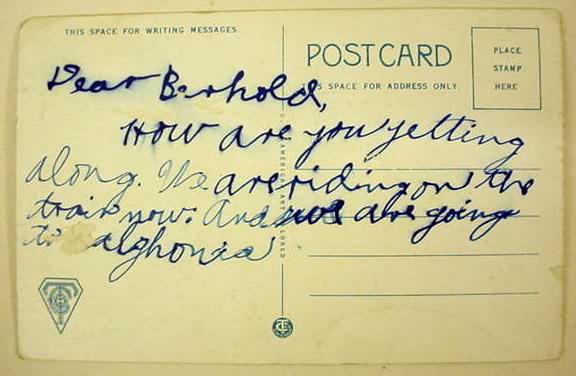 THIS SPACE FOR WRITING MESSAGES.
POST CARD
PLACE
STAMP
HERE
THIS SPACE FOR ADDRESS ONLY.
Dear Berhold,
How are you getting
along. We are riding on the
train now. And we are going
to